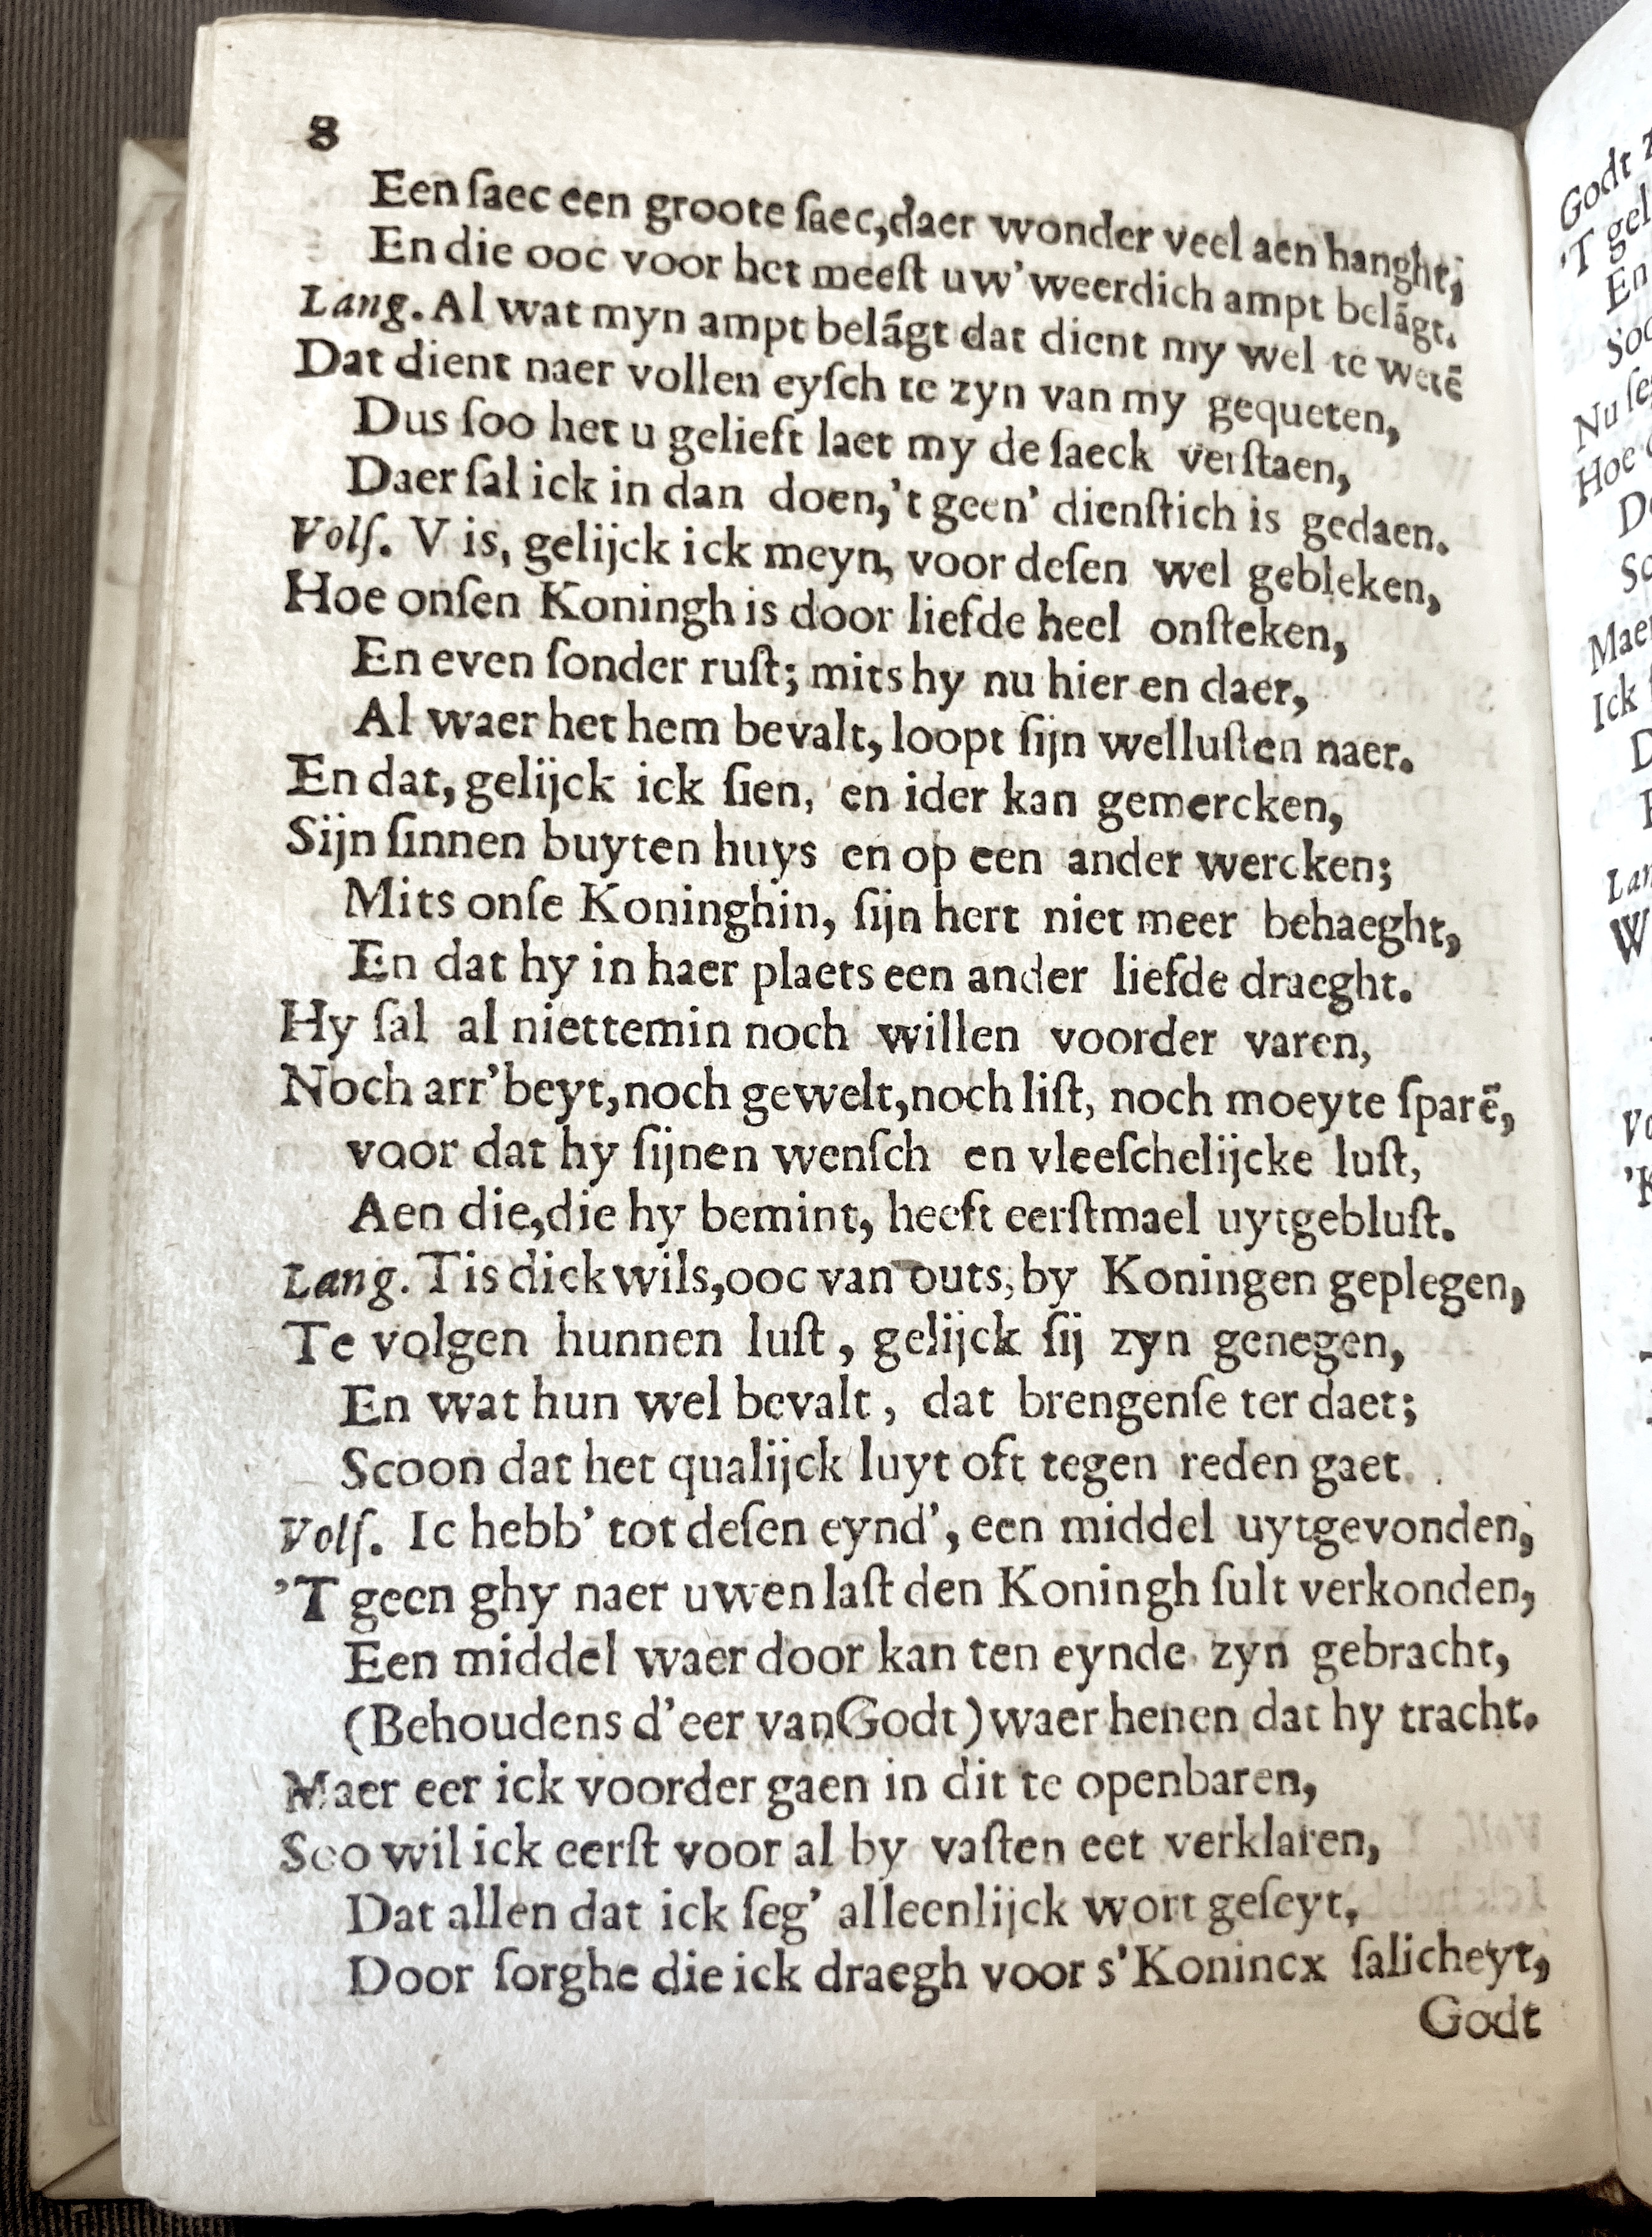 8
Een ſaec een groote ſaec,daer wonder veel aen hanght;
En die ooc voor het meeſt uw' weerdich ampt belãgt.
Lang. Al wat myn ampt belãgt dat dient my wel te wetẽ
Dat dient naer vollen eyſch te zyn van my gequeten,
Dus ſoo het u gelieft laet my de ſaeck verſtaen,
Daer ſal ick in dan doen,'t geen' dienſtich is gedaen.
Volſ. V is, gelijck ick meyn, voor deſen wel gebleken,
Hoe onſen Koningh is door liefde heel onſteken,
En even ſonder ruſt; mits hy nu hier en daer,
Al waer het hem bevalt, loopt ſijn welluſten naer.
En dat, gelijck ick ſien, en ider kan gemercken,
Sijn ſinnen buyten huys en op een ander wercken;
Mits onſe Koninghin, ſijn hert niet meer behaeght,
En dat hy in haer plaets een ander liefde draeght.
Hy ſal al niettemin noch willen voorder varen,
Noch arr'beyt,noch gewelt,noch liſt, noch moeyte ſparẽ,
voor dat hy ſijnen wenſch en vleeſchelijcke luſt,
Aen die,die hy bemint, heeft eerſtmael uytgebluſt.
Lang. Tis dickwils,ooc van outs,by Koningen geplegen,
Te volgen hunnen luſt, gelijck ſij zyn genegen,
En wat hun wel bevalt, dat brengenſe ter daet;
Scoon dat het qualijck luyt oft tegen reden gaet.
Volſ. Ic hebb' tot deſen eynd', een middel uytgevonden,
'T geen ghy naer uwen laſt den Koningh ſult verkonden,
Een middel waer door kan ten eynde zyn gebracht,
(Behoudens d'eer vanGodt) waer henen dat hy tracht.
Maer eer ick voorder gaen in dit te openbaren,
Soo wil ick eerſt voor al by vaſten eet verklaren,
Dat allen dat ick ſeg' alleenlijck wort geſeyt,
Door ſorghe die ick draegh voor s'Konincx ſalicheyt,
Godt